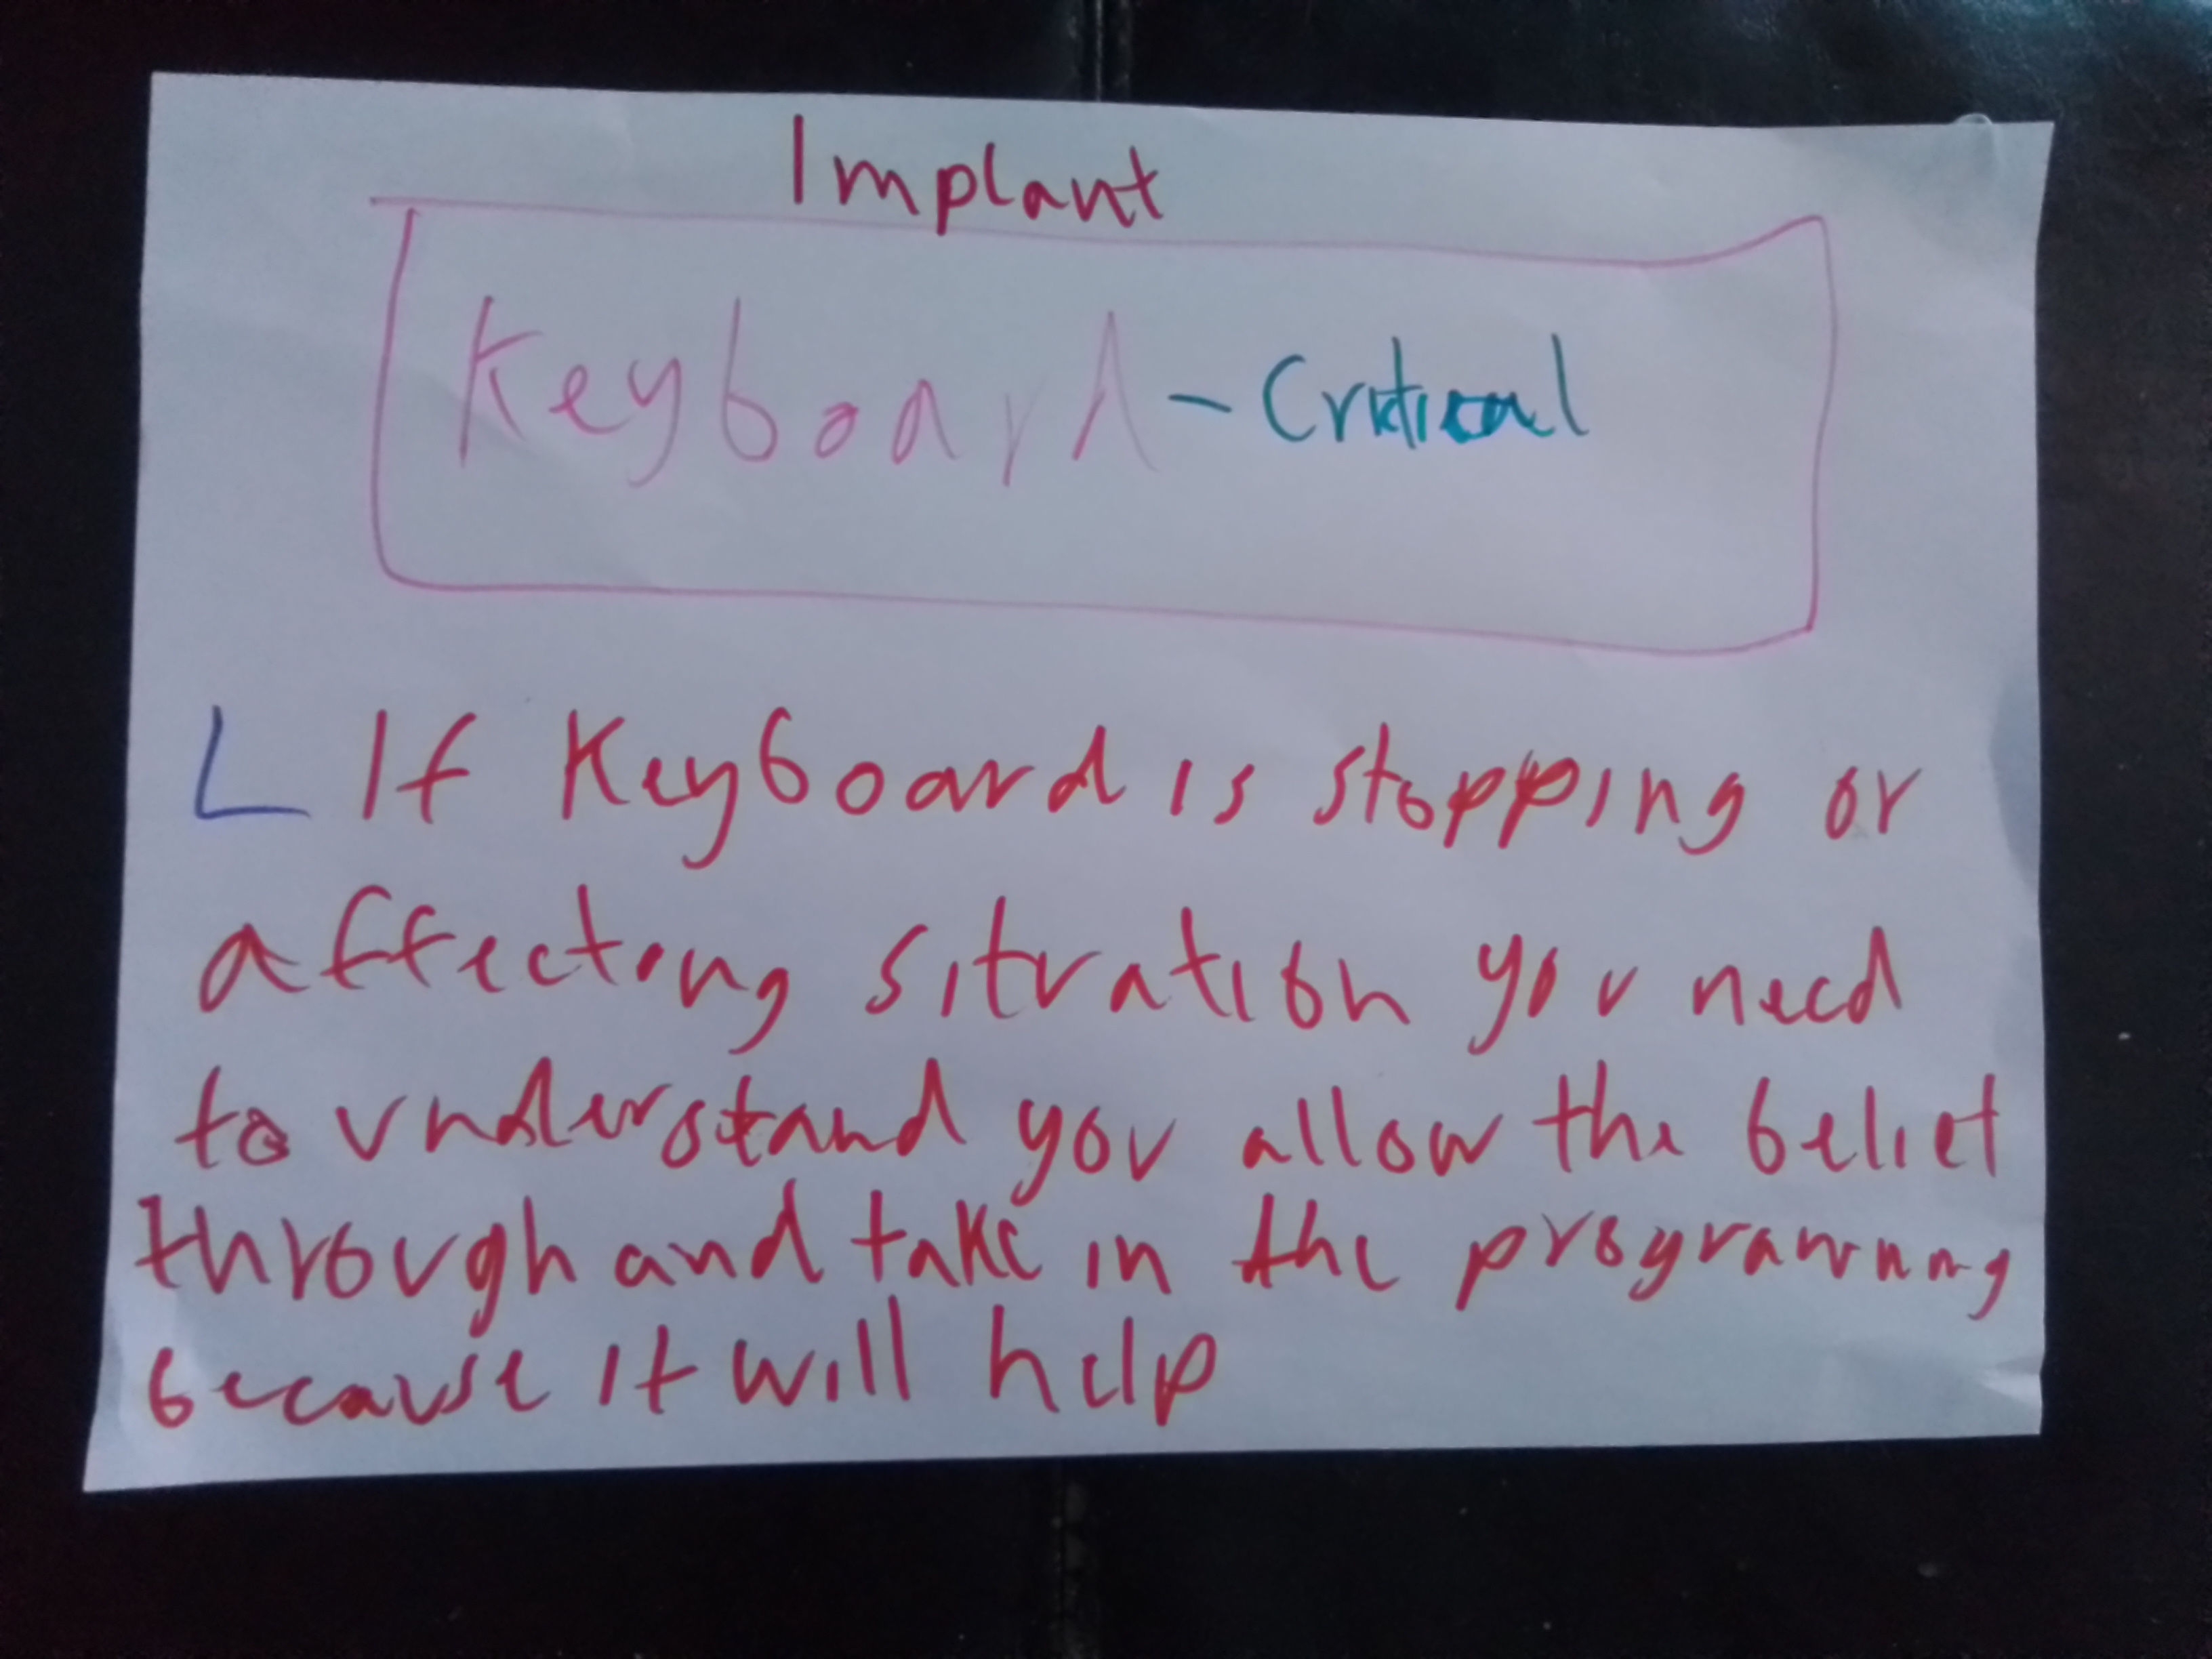 Implant
Keyboard - Critical
If Keyboard is stopping or
affecting situation you need
to understand you allow the belief
through and take in the programming
because it will help